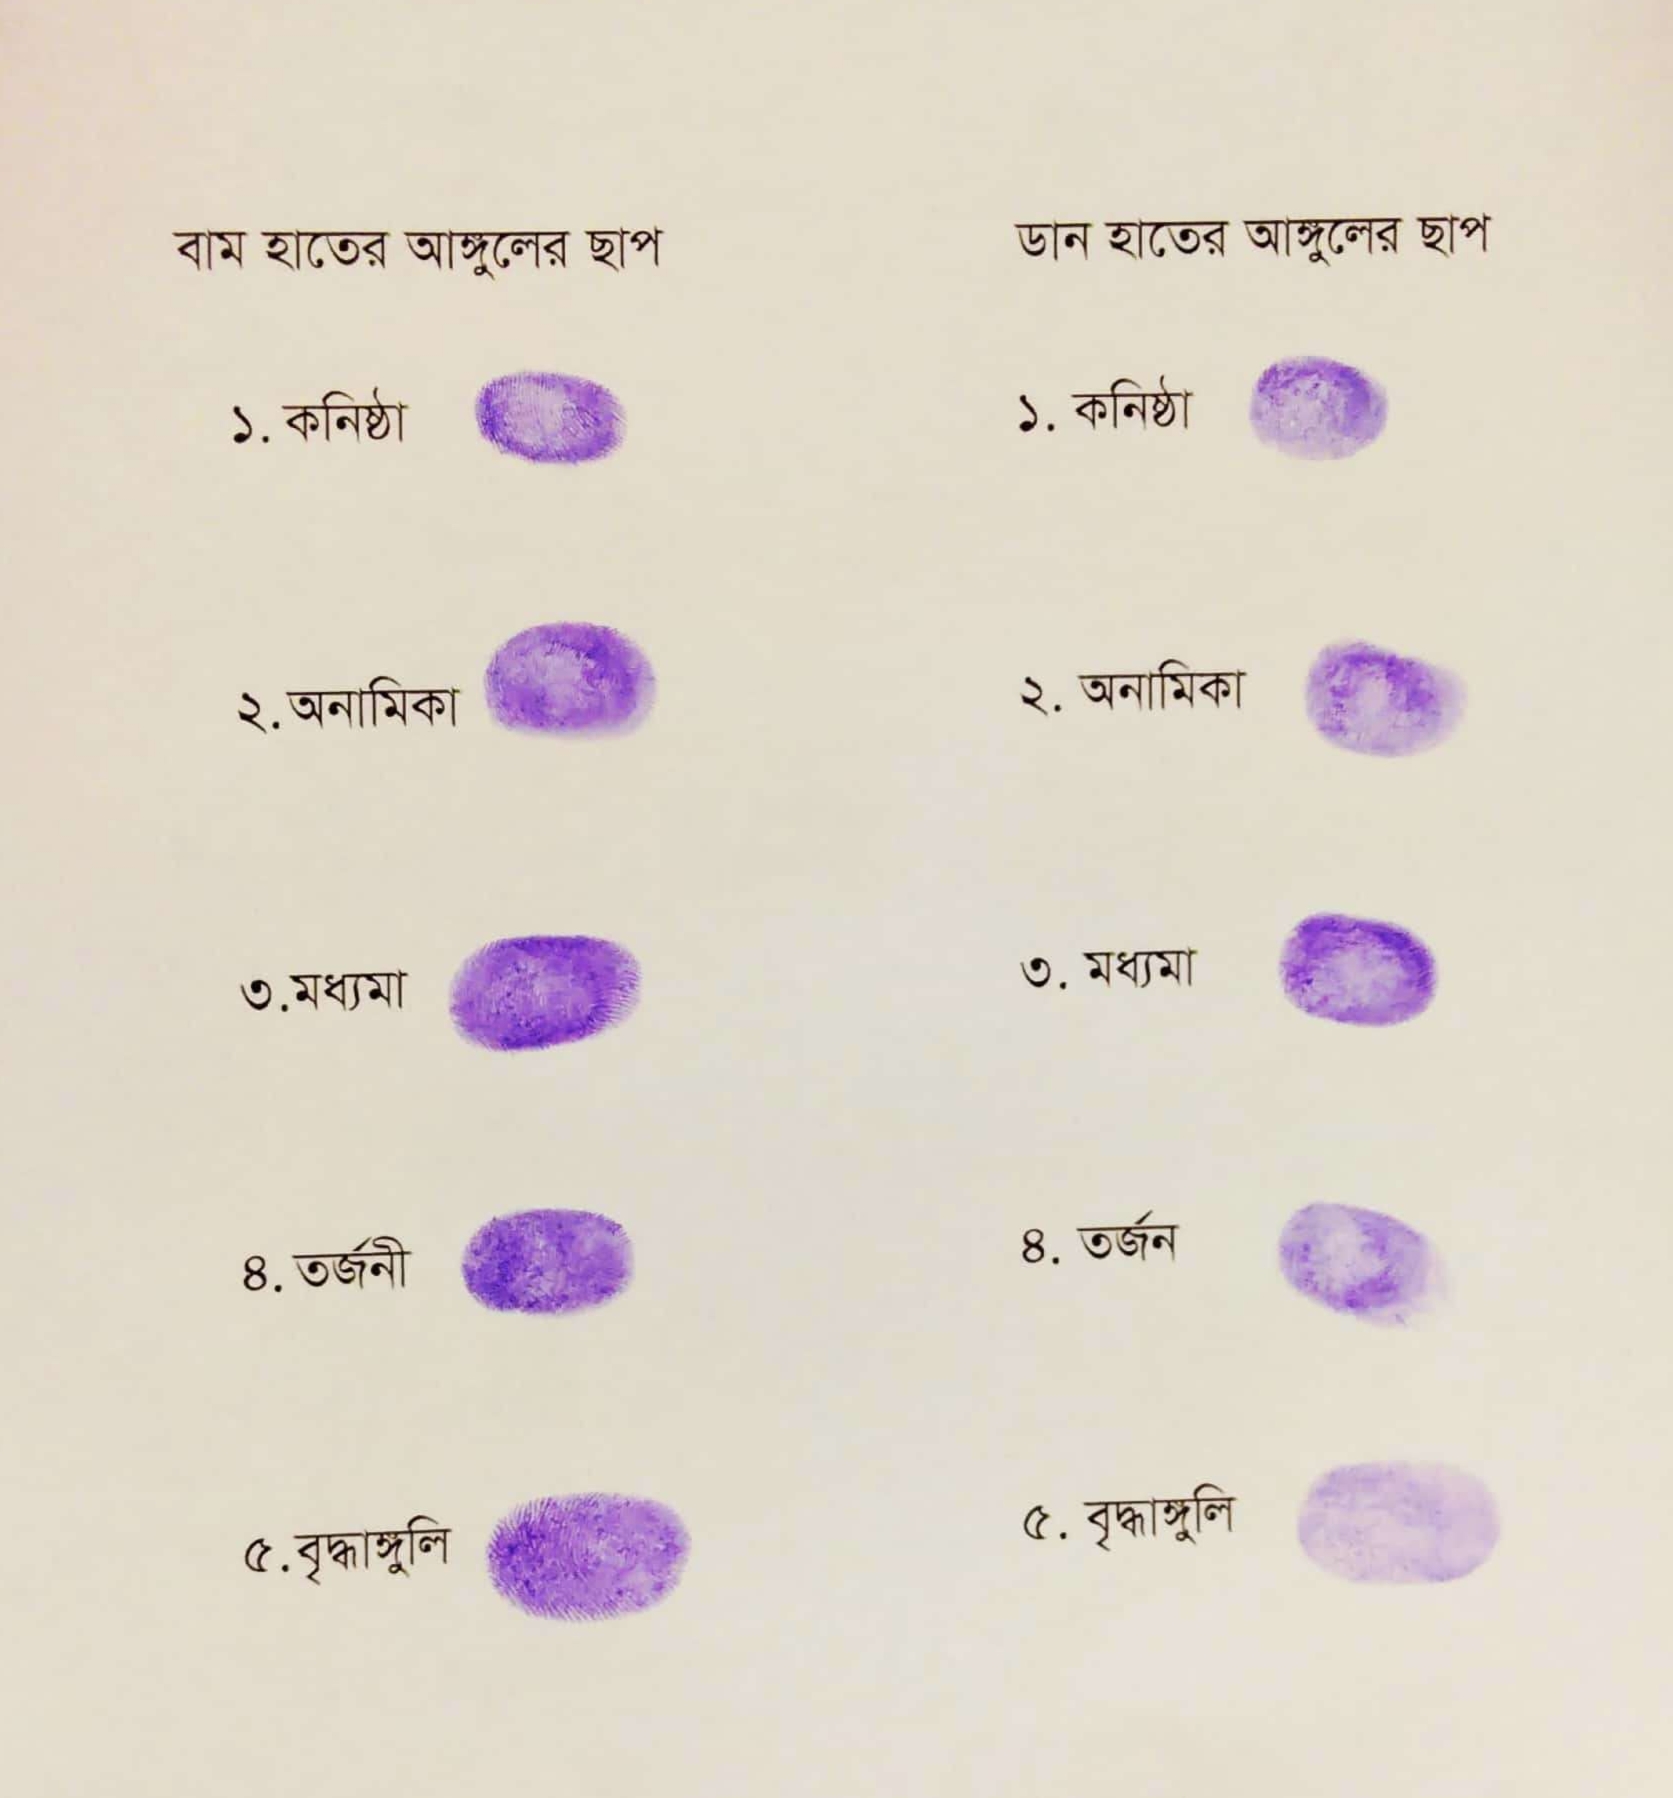 বাম হাতের আঙ্গুলের ছাপ
১. কনিষ্ঠা
২.অনামিকা
৩.মধ্যমা
৪. তর্জনী
৫.বৃদ্ধাঙ্গুলি
ডান হাতের আঙ্গুলের ছাপ
১. কনিষ্ঠা
২. অনামিকা
৩. মধ্যমা
৪. তর্জন
৫. বৃদ্ধাঙ্গুলি